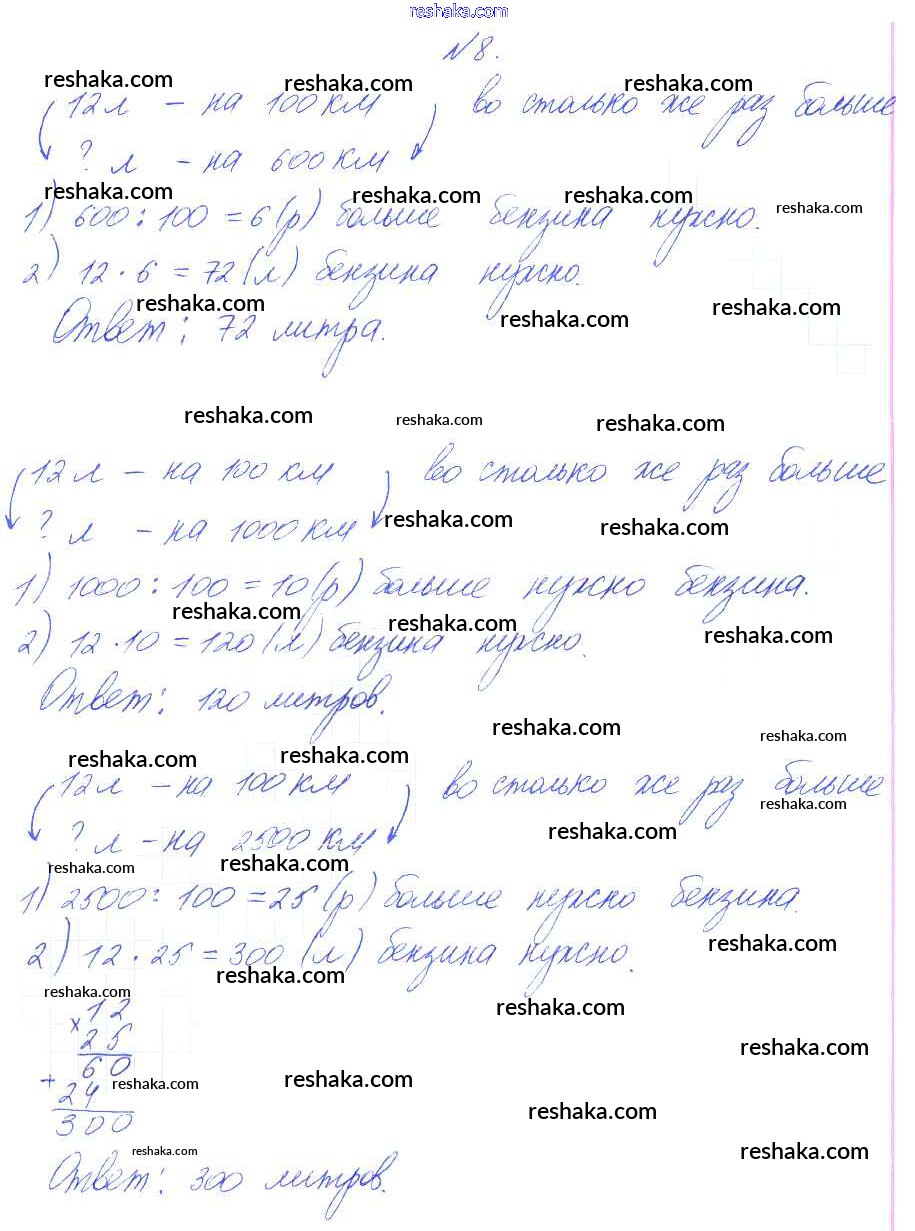 reshaka.com
№8.
reshaka.com reshaka.com reshaka.com
12 л – на 100 км во столько же раз больше
? л – на 600 км
reshaka.com reshaka.com reshaka.com reshaka.com
1) 600 : 100 = 6 (р) больше бензина нужно.
2) 12 · 6 = 72 (л) бензина нужно.
reshaka.com reshaka.com reshaka.com
Ответ: 72 литра.
reshaka.com reshaka.com reshaka.com
12 л – на 100 км во столько же раз больше
? л – на 1000 км
reshaka.com reshaka.com
1) 1000 : 100 = 10 (р) больше нужно бензина.
reshaka.com reshaka.com reshaka.com
2) 12 · 10 = 120 (л) бензина нужно.
Ответ: 120 литров.
reshaka.com reshaka.com
reshaka.com reshaka.com
12 л – на 100 км во столько же раз больше
reshaka.com reshaka.com
? л – на 2500 км
reshaka.com reshaka.com
1) 2500 : 100 = 25 (р) больше нужно бензина.
2) 12 · 25 = 300 (л) бензина нужно.
reshaka.com reshaka.com
reshaka.com reshaka.com
× 12
25
reshaka.com
60
+ 24
reshaka.com reshaka.com
300
reshaka.com
reshaka.com reshaka.com
Ответ: 300 литров.